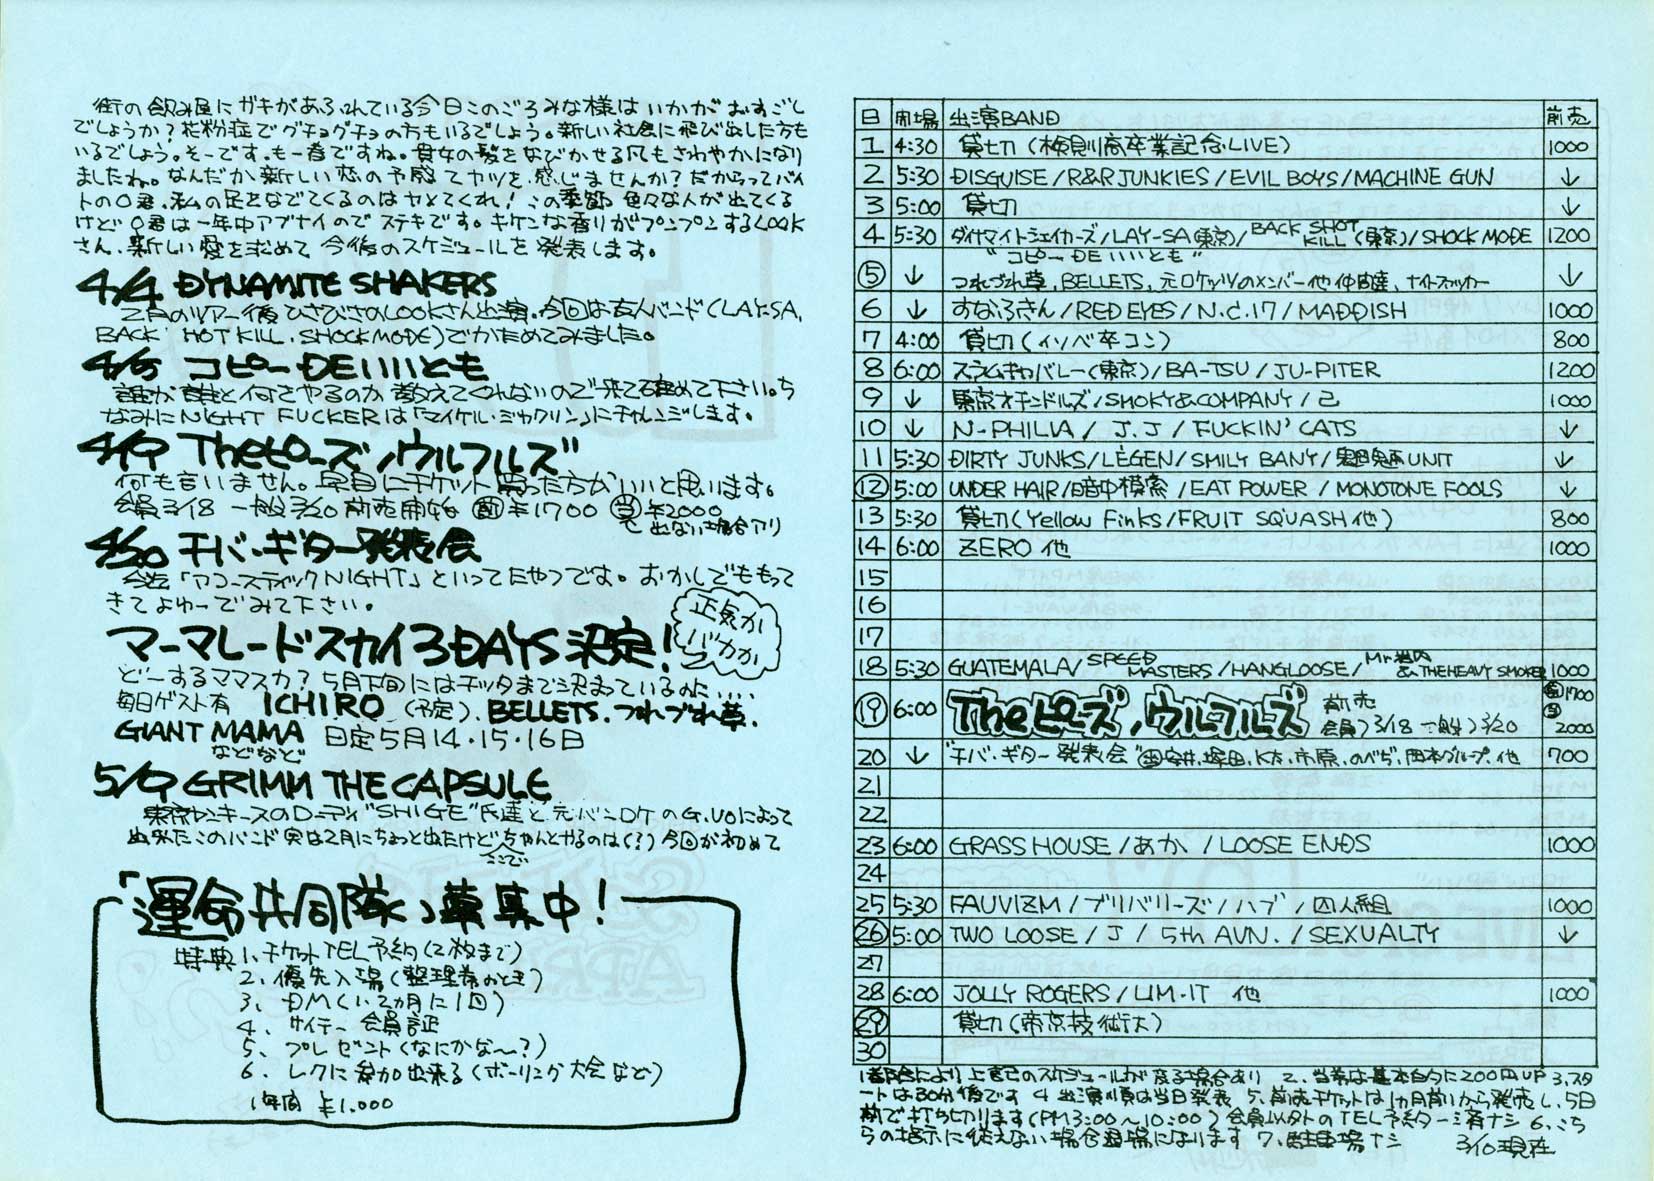 街の飲み屋にガキがあふれている今日このごろみな様はいかがおすごし
でしょうか?花粉症でグチョグチョの方もいるでしょう。新しい社会に飛び出した方も
いるでしょう。そーです。も一春ですね。貴女の髪をなびかせる風もさわやかになり
ましたね。なんだか新しい恋の予感てヤツを感じませんか?だからってバイ
トのO君、私の足をなでてくるのはヤメてくれ!この季節色々な人が出てくる
けどO君は一年中アブナイのでステキです。キケンな香りがプンプンするLOOK
さん、新しい愛を求めて今後のスケジュールを発表します。
4/4 DYNAMITE SHAKERS
2月のツアー後ひさびさのLOOKさん出演。今回は友人バンド(LAY-SA,
BACK SHOT KILL. SHOCK MODE)でかためてみました。
4/5 コピーDEいいとも
誰が誰と何をやるのか教えてくんないので来て確めて下さい。ち
なみにNIGHT FUCKERは「マイケル・ミャクリン」にチャレンジします。
4/19 Theピーズ/ウルフルズ
何も言いません。早目にチケット買った方がいいと思います。
会員3/18 一般3/20 前売開始 前¥1700 当¥2000
で出ない場合アリ
4/20 チバ・ギター発表会
今迄「アコースティックNIGHT」といってたやつです。おかしでももって
きてよゆーでみて下さい。
正気か
バカか
マーマレードスカイ3DAYS決定!
どーするママスカ?5月下旬にはチッタまで決まっているのに....
毎日ゲスト有 ICHIRO(予定). BELLETS. つれづれ草.
GIANT MAMA 日定5月14・15・16日
などなど
5/9 GRIMM THE CAPSULE
東京ヤンキースのローディ"SHIGE"氏達と元バンロケのG.VOによって
出来たこのバンド実は2月にちょっと出たけどちゃんとやるのは(?)今回が初めて
ここで
「運命共同隊」募集中!
特典 1、チケットTEL予約(2枚まで)
2、優先入場(整理券のとき)
3、DM(1、2ヵ月に1回)
4、サイテー会員証
5、プレゼント(なにかな〜?)
6、レクに参加出来る(ボーリング大会など)
1年間 ¥1.000
日 開場 出演BAND 前売
1 4:30 貸切(検見川高卒業記念LIVE) 1000
2 5:30 DISGUISE/R&R JUNKIES/EVIL BOYS/MACHINE GUN ↓
3 5:00 貸切 ↓
4 5:30 ダイナマイトシェイカーズ/LAY-SA(東京)/BACK SHOT KILL(東京)/SHOCK MODE 1200
⑤ ↓ "コピーDEいいとも"
つれづれ草、BELLETS、元ロケッツのメンバー他仲間達、ナイトファッカー ↓
6 ↓ すなふきん/RED EYES/N.C.17/MADDISH 1000
7 4:00 貸切(イソベ卒コン) 800
8 6:00 スラムキャバレー(東京)/BA-TSU/JU-PITER 1200
9 ↓ 東京オモンドルズ/SMOKY&COMPANY/己 1000
10 ↓ N-PHILIA/J.J/FUCKIN' CATS ↓
11 5:30 DIRTY JUNKS/LÉGEN/SMILY BANY/魑魅UNIT ↓
⑫ 5:00 UNDER HAIR/暗中模索/EAT POWER/MONOTONE FOOLS ↓
13 5:30 貸切(Yellow Finks/FRUIT SQUASH他) 800
14 6:00 ZERO 他 1000
15
16
17
18 5:30 GUATEMALA/SPEED MASTERS/HANGLOOSE/Mr岩内&THE HEAVY SMOKER 1000
⑲ 6:00 Theピーズ/ウルフルズ 前売 会員)3/18 一般)3/20 前1700 当2000
20 ↓ "チバ・ギター発表会" 出安井、塚田、K太、市原、のべぢ、岡本グループ、他 700
21
22
23 6:00 GRASS HOUSE/あか/LOOSE ENDS 1000
24
25 5:30 FAUVIZM/ブリバリーズ/ハブ/四人組 1000
㉖ 5:00 TWO LOOSE/J/5th AVN./SEXUALTY ↓
27
28 6:00 JOLLY ROGERS/LIM・IT 他 1000
㉙ 貸切(帝京技術大)
30
1都合により上記のスケジュールが変る場合あり 2、当券は基本的に200円UP 3、スタ
ートは30分後です 4出演順は当日発表 5、前売チケットは1ヵ月前から発売し、5日
前で打ち切ります(PM3:00〜10:00)会員以外のTEL予約ター済ナシ 6、こち
らの指示に従えない場合退場になります 7、駐車場ナシ 3/10現在